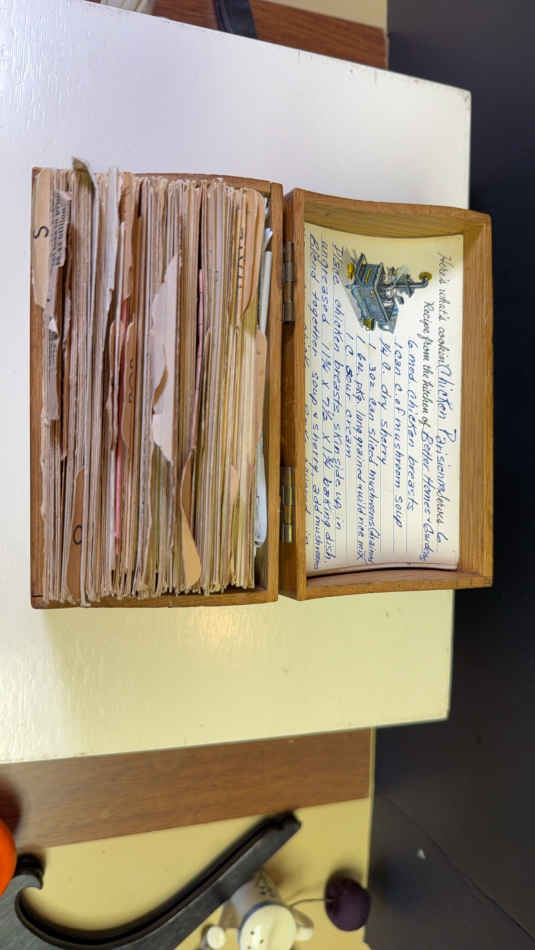 Here's what's cookin' Chicken Parisienne Serves 6
Recipe from the kitchen of Better Homes & Garden
6 med chicken breasts
1 can c. of mushroom soup
dry sherry
1 3oz can sliced mushrooms
1 6 oz. pkg. long grained & wild rice mix
1 C sour cream
Place chicken breasts, skin side up in
ungreased 11¾ x 7½ x 1¾ baking dish.
Blend together soup & sherry, add mushrooms
S
O